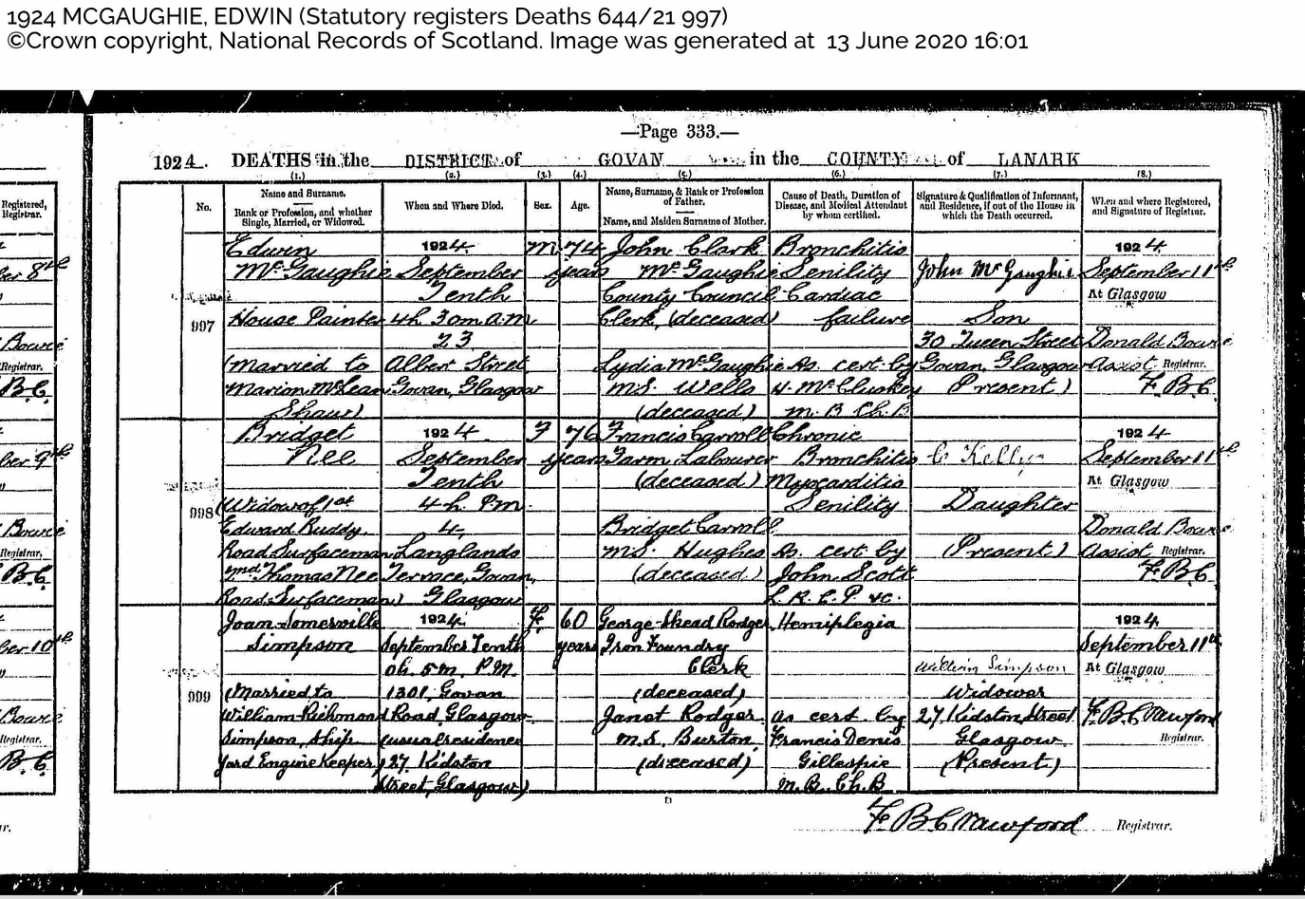 1924 MCGAUGHIE, EDWIN (Statutory registers Deaths 644/21 997)
©Crown copyright, National Records of Scotland. Image was generated at 13 June 2020 16:01
—Page 333.—
1924. DEATHS in the DISTRICT of GOVAN in the COUNTY of LANARK
(1.) (2.) (3.) (4.) (5.) (6.) (7.) (8.)
No.
Name and Surname.
Rank or Profession, and whether
Single, Married, or Widowed.
When and Where Died.
Sex.
Age.
Name, Surname, & Rank or Profession
of Father.
Name, and Maiden Surname of Mother.
Cause of Death, Duration of
Disease, and Medical Attendant
by whom certified.
Signature & Qualification of Informant,
and Residence, if out of the House in
which the Death occurred.
When and where Registered,
and Signature of Registrar.
997
Edwin
McGaughie
House Painter
(Married to
Marion McLean
Shaw)
1924
September
Tenth
4h 30m a.m
23
Albert Street
Govan, Glasgow
M
74
years
John Clark
McGaughie
County Council
Clerk (deceased)
Lydia McGaughie
M.S. Wells
(deceased)
Bronchitis
Senility
Cardiac
failure
As cert by
McCluskey
M.B Ch.B
John McGaughie
Son
30 Queen Street
Govan, Glasgow
Present)
1924
September 11th
At Glasgow
Donald Bowie
Assist Registrar.
F.B.C.
998
Bridget
Nee
(Widow of 1st
Edward Ruddy,
Road Surfaceman
2nd Thomas Nee
Road Surfaceman)
1924
September
Tenth
4h. P.m.
4,
Langlands
Terrace, Govan,
Glasgow
F
76
years
Francis Carroll
Farm Labourer
(deceased)
Bridget Carroll
M.S. Hughes
(deceased)
Chronic
Bronchitis
Myocarditis
Senility
As. cert by
John Scott
L.R.C.P. &c.
C Kelly
Daughter
(Present)
1924
September 11th
At Glasgow
Donald Bowie
Assist Registrar.
F.B.C
999
Joan Somerville
Simpson
(Married to
William Richmond
Simpson, Ship
yard Engine Keeper)
1924
September Tenth
0h. 5m. P.M.
1301, Govan
Road, Glasgow
(usual residence
127 Kidston
Street, Glasgow)
F.
60
years
George Skead Rodger
Iron Foundry
Clerk
(deceased)
Janet Rodger
M.S. Burton
(deceased)
Hemiplegia
as cert by
Francis Denis
Gillespie
M.B. Ch.B
William Simpson
Widower
27 Kidston Street
Glasgow
(Present)
1924
September 11th
At Glasgow
F.B.Crawford
Registrar.
F.B.Crawford Registrar.
Registered,
Registrar.
8th
Bowie
Registrar.
B.C.
9th
Bowie
Registrar,
B.C
10th
Bowie
Registrar.
B.C.